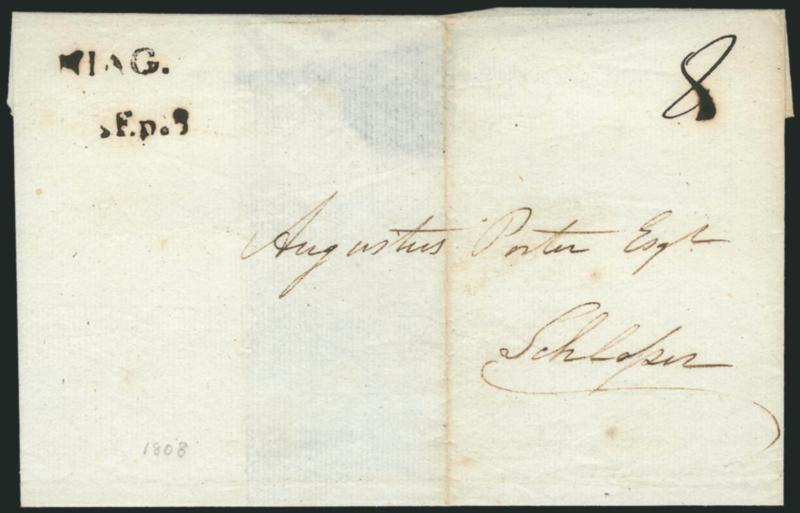 NIAG.
8
SEp. 8
Augustus Porter Esqr
Schlosser
1808